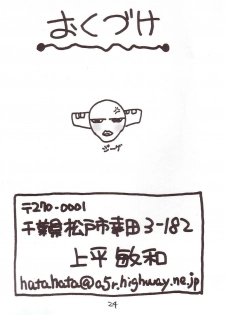 おくづけ
ジーグ
〒270-0001
千葉県松戸市幸田3-182
上平敏和
hatahata@a5r.highway.ne.jp
24